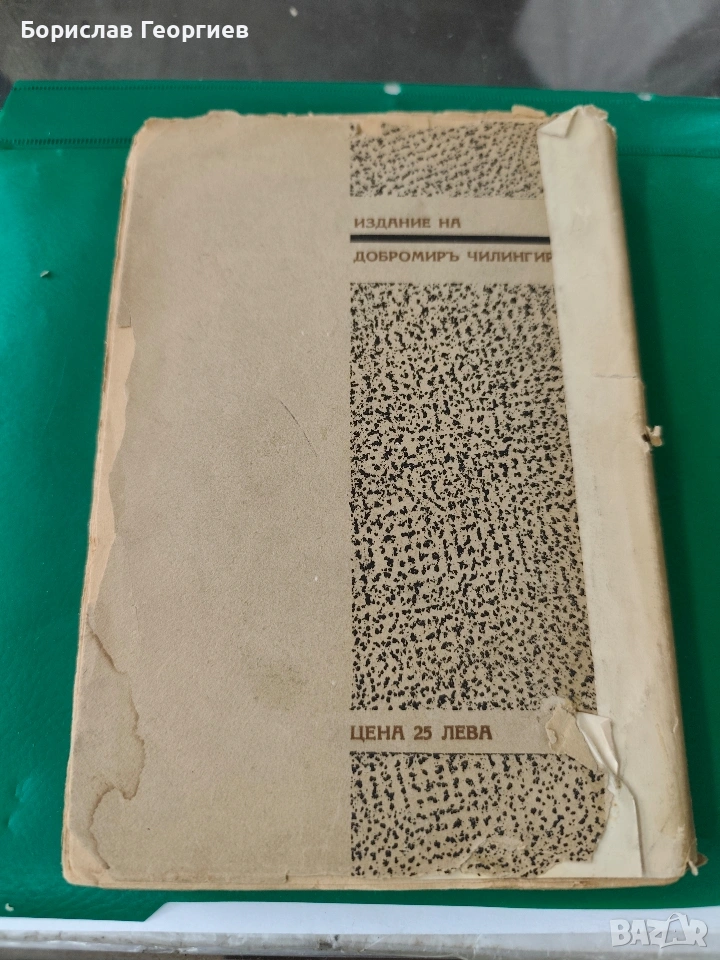 Борислав Георгиев
ИЗДАНИЕ НА
ДОБРОМИРЪ ЧИЛИНГИР
ЦЕНА 25 ЛЕВА
BAZAR